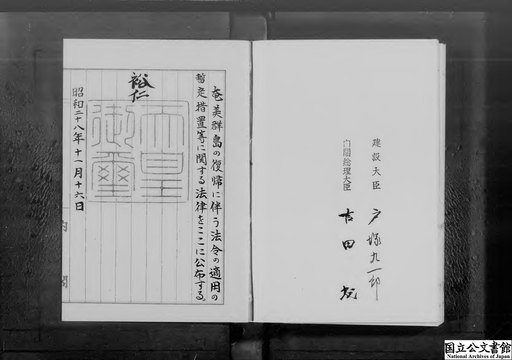 奄美群島の復帰に伴う法令の適用の
暫定措置等に関する法律をここに公布する。
裕仁
天皇
御璽
昭和二十八年十一月十六日
内閣
建設大臣
戸塚九一郎
内閣総理大臣
吉田茂
国立公文書館
National Archives of Japan